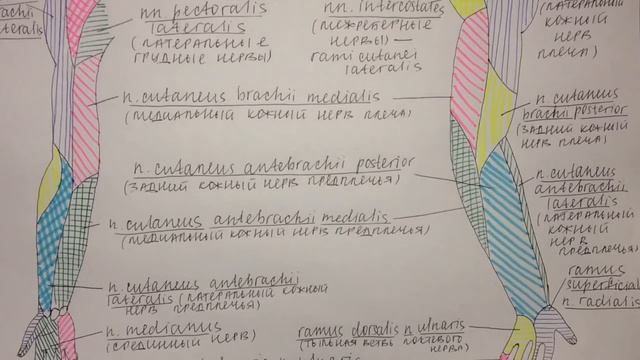 brachii
lateralis
nn. pectoralis
lateralis
(латеральные
грудные нервы)
nn. intercostales
(межреберные
нервы) —
rami cutanei
lateralis
(латеральный
кожный
нерв
плеча)
n. cutaneus brachii medialis
(медиальный кожный нерв плеча)
n. cutaneus
brachii posterior
(задний
кожный
нерв плеча)
n. cutaneus antebrachii posterior
(задний кожный нерв предплечья)
n. cutaneus
antebrachii
lateralis
(латеральный
кожный
нерв
предплечья)
n. cutaneus antebrachii medialis
(медиальный кожный нерв предплечья)
n. cutaneus antebrachii
lateralis (латеральный кожный
нерв предплечья)
ramus
superficial
n. radialis
n. medianus
(срединный нерв)
ramus dorsalis n. ulnaris
(тыльная ветвь локтевого
нерва)